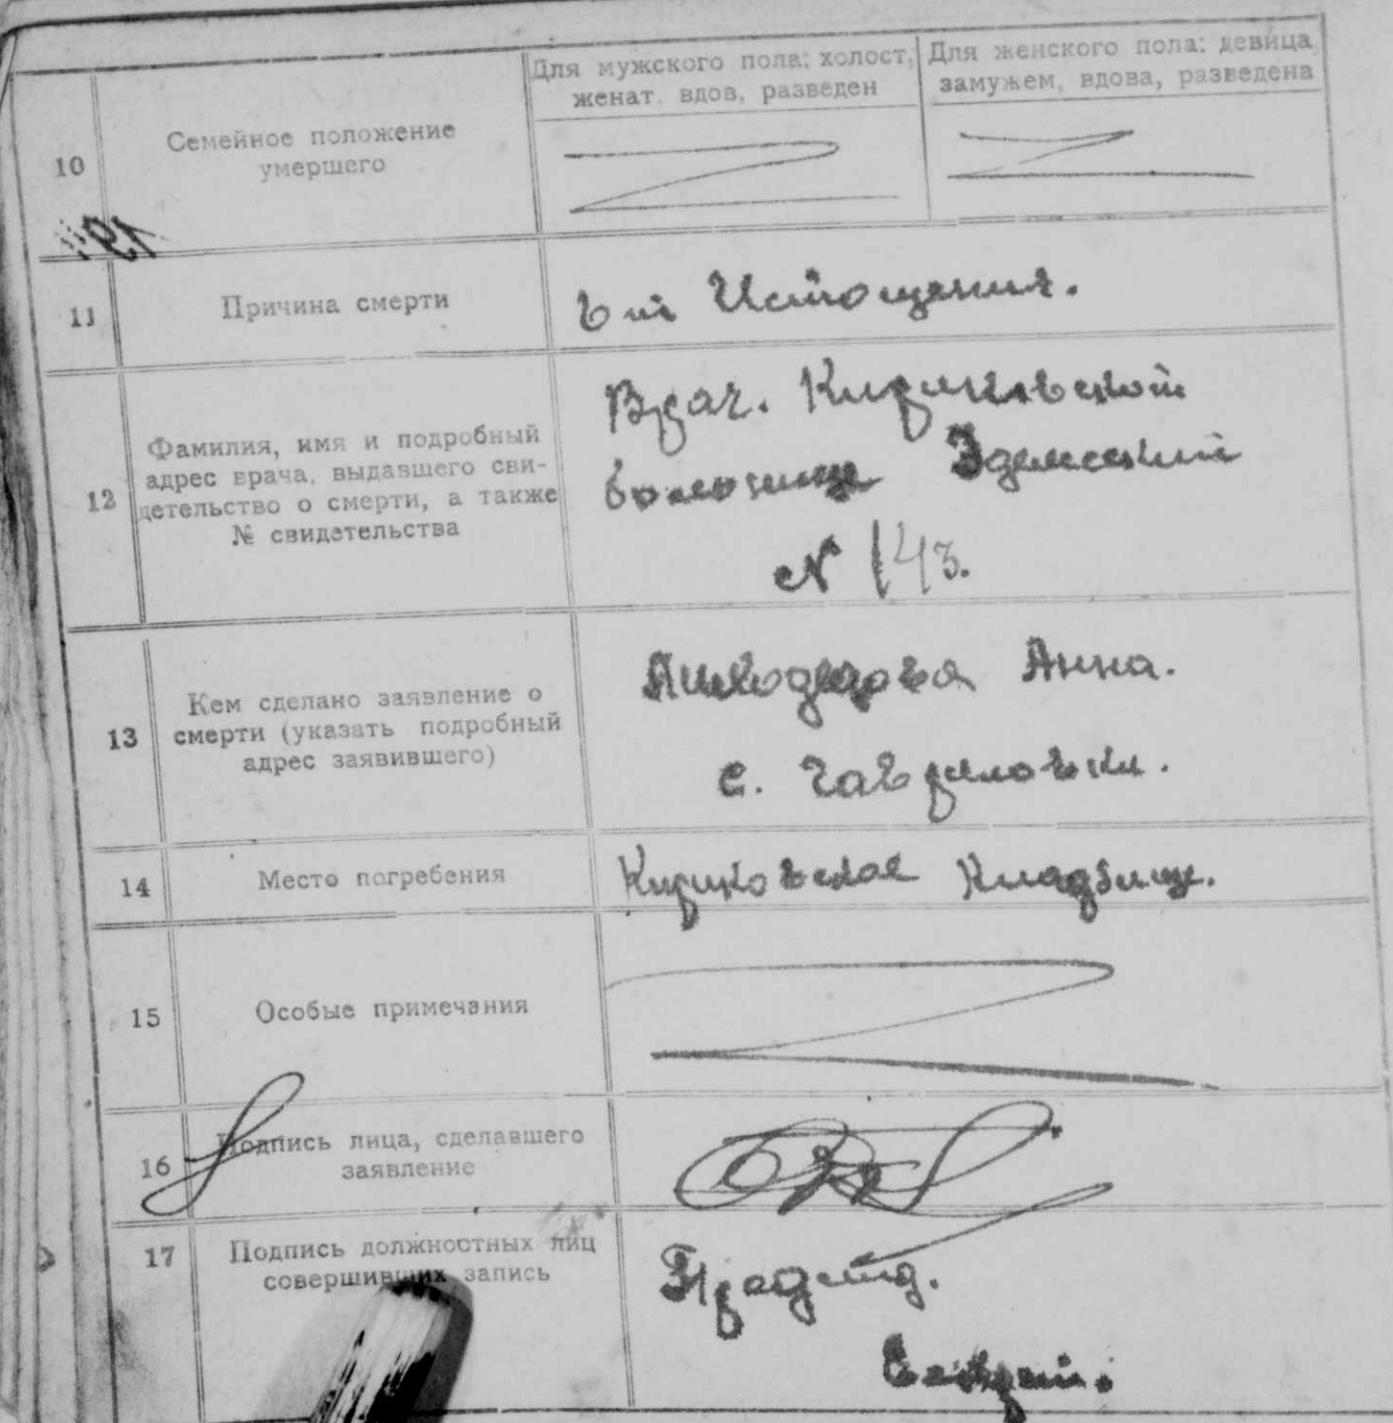 Для мужского пола: холост, женат, вдов, разведен
Для женского пола: девица, замужем, вдова, разведена
10
Семейное положение
умершего
11
Причина смерти
от Истощения.
12
Фамилия, имя и подробный
адрес врача, выдавшего сви-
детельство о смерти, а также
№ свидетельства
Врач. Кириковской
больнице
N 143.
13
Кем сделано заявление о
смерти (указать подробный
адрес заявившего)
Анна.
с. Гавриловки.
14
Место погребения
Кириковское Кладбище.
15
Особые примечания
16
Подпись лица, сделавшего
заявление
17
Подпись должностных лиц
совершивших запись